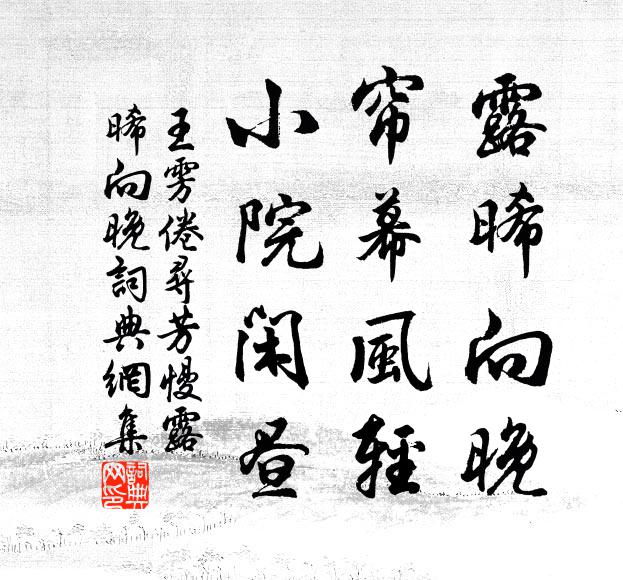 露晞向晚
帘幕風輕
小院閑昼
王雱倦尋芳慢露
晞向晚詞典網集
詞典網印